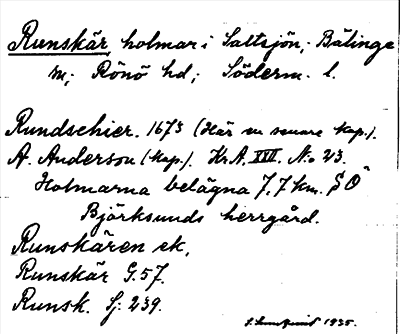 Runskär, holmar i Saltsjön, Bälinge
sn; Rönö hd; Söderm. l.
Rundschier. 1673 (Här en senare kop.).
A. Anderson (kop.). Kr.A. XIII. No 23.
Holmarna belägna 7,7 km. S O
Björksunds herrgård.
Runskären ek.
Runskär G. 57.
Runsk. Sj. 239.
1935.